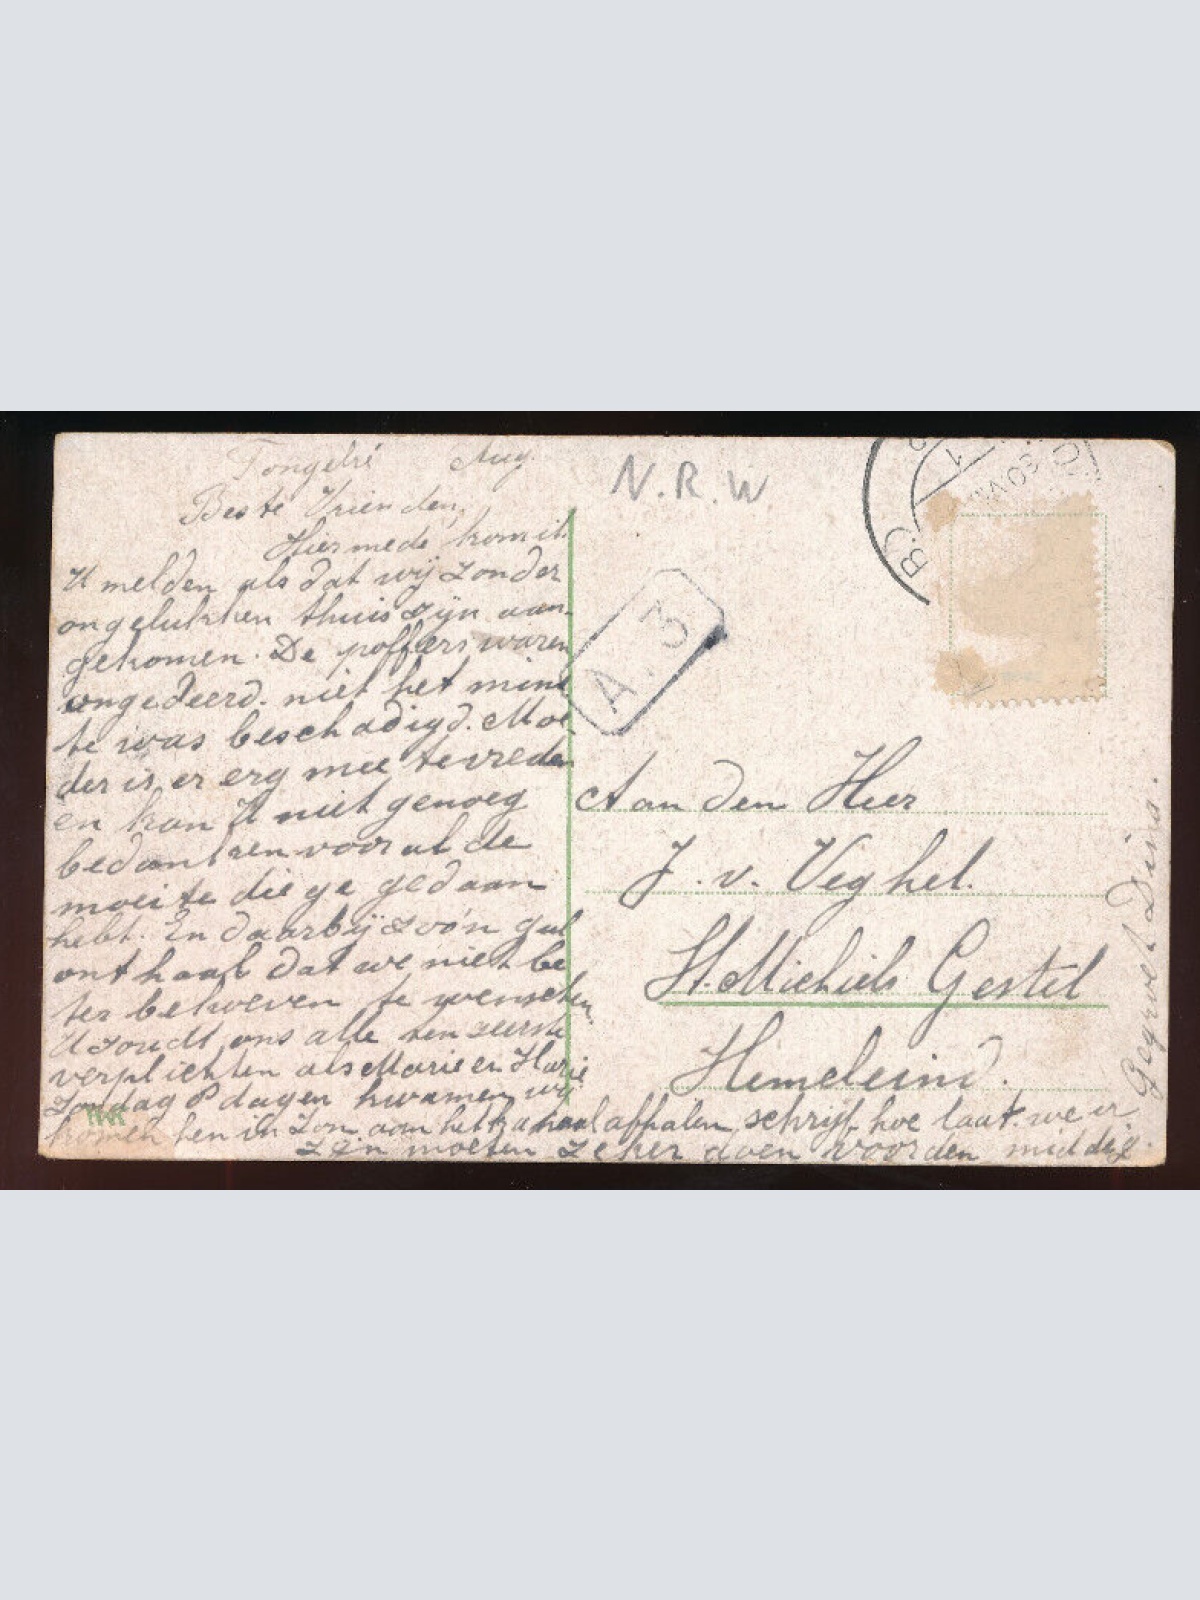 Tongelré Aug.
Beste Vrienden,
Hiermede kom ik
U melden als dat wij zonder
ongelukken thuis zijn aan-
gekomen. De poffers waren
ongedeerd. niet het mins
te was beschadigd. Moe
der is er erg mee tevreden
en kan U niet genoeg
bedanken voor al de
moeite die ge gedaan
hebt. En daarbij zoo'n gul
onthaal dat we niet be
ter behoeven te wenschen.
U zoudt ons alle ten zeerste
verplichten als Marie en Harie
Zondag 8 dagen kwamen wij
komen hen in Zon aan het kanaal afhalen, schrijf hoe laat we er
zijn moeten zeker doen voor den middag.
Gegroet Dina.
N.R.W
A.3
Aan den Heer
J. v. Veghel.
St. Michiels Gestel
Hemeleind.